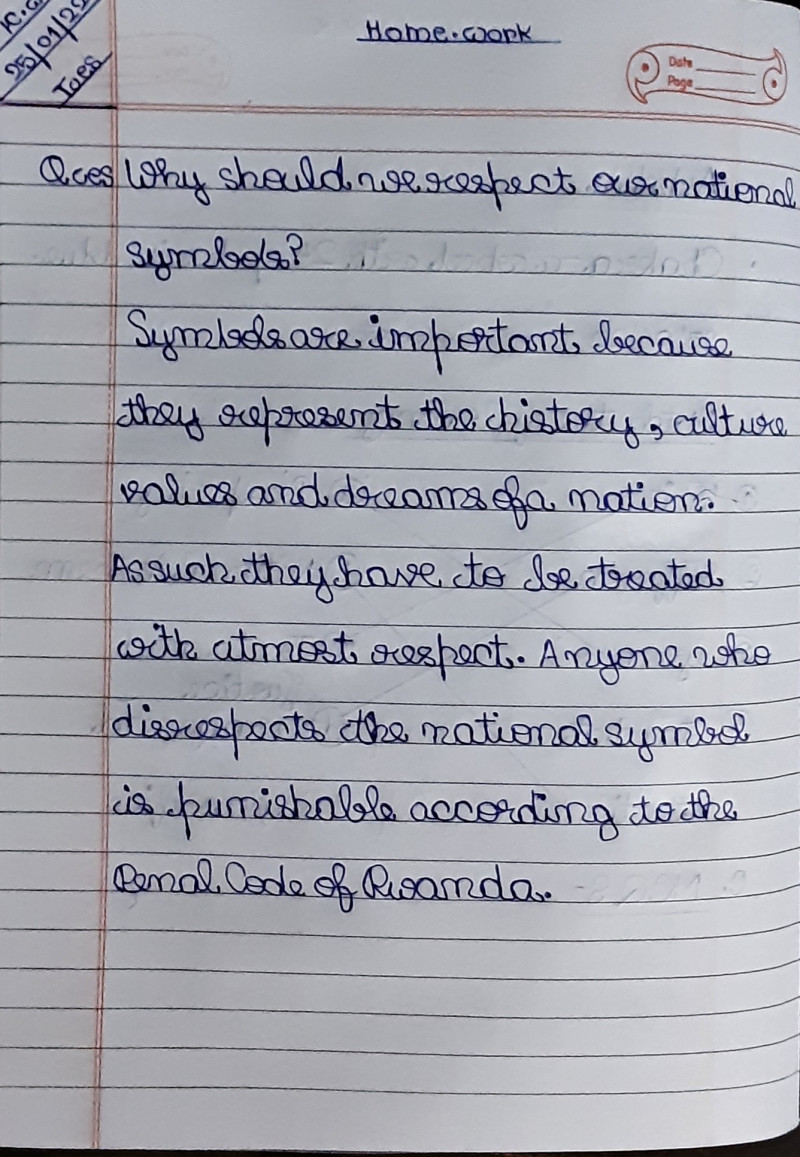 Home.work
25/01/25
Tues
Date
Page
Ques Why should we respect our national
symbols?
Symbols are important because
they represent the history, culture
values and dreams of a nation.
As such they have to be treated
with utmost respect. Anyone who
disrespects the national symbol
is punishable according to the
Penal Code of Rwanda.